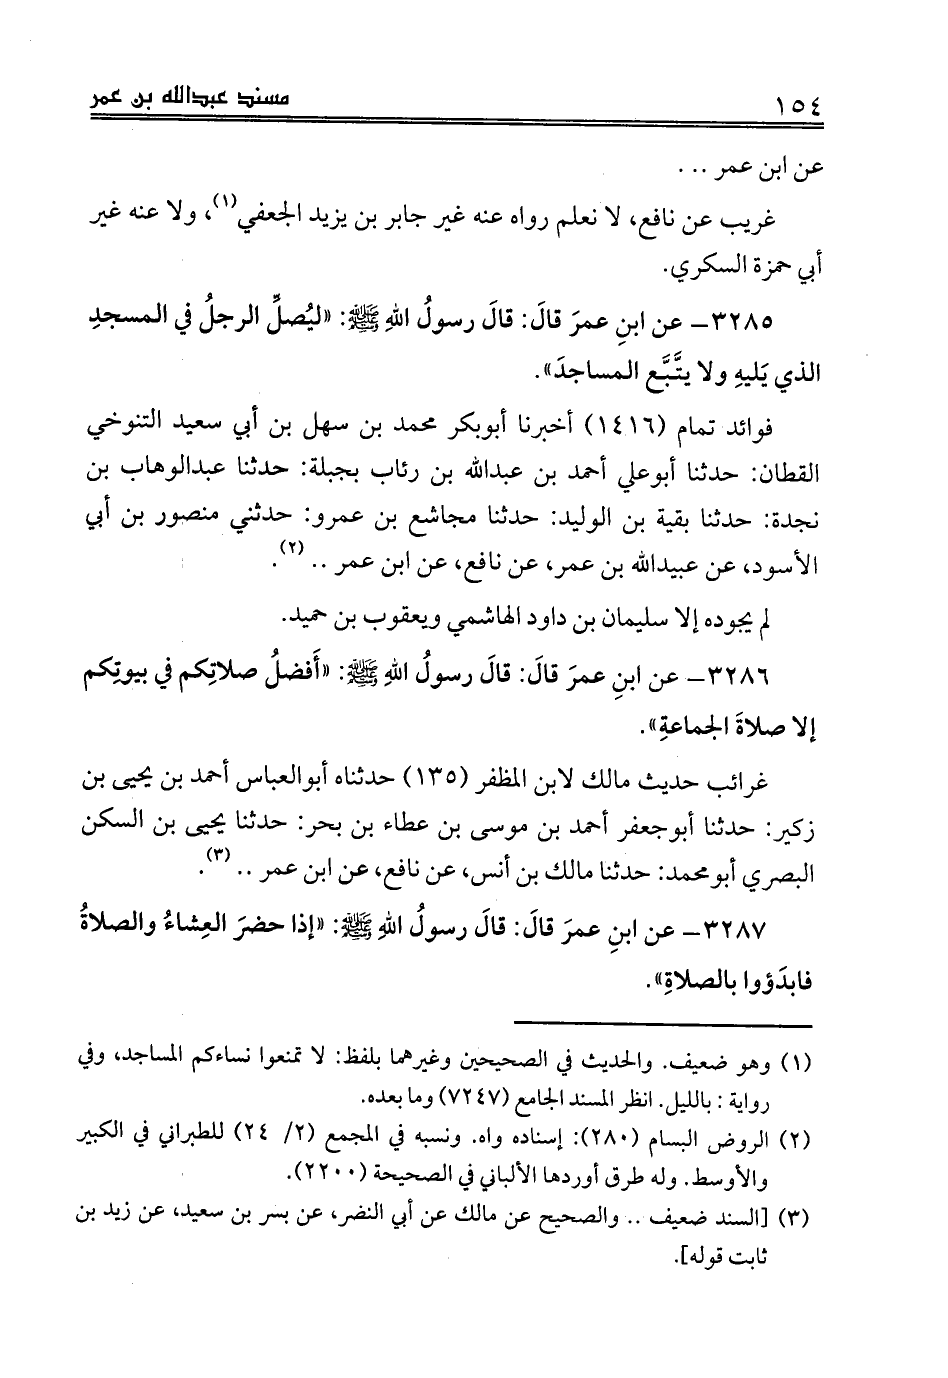 ١٥٤ مسند عبدالله بن عمر
عن ابن عمر ...
غريب عن نافع، لا نعلم رواه عنه غير جابر بن يزيد الجعفي(١)، ولا عنه غير
أبي حمزة السكري.
٣٢٨٥- عن ابنِ عمرَ قالَ: قالَ رسولُ اللهِ ﷺ: «ليُصلِّ الرجلُ في المسجدِ
الذي يَليهِ ولا يتَّبَّع المساجدَ».
فوائد تمام (١٤١٦) أخبرنا أبوبكر محمد بن سهل بن أبي سعيد التنوخي
القطان: حدثنا أبوعلي أحمد بن عبدالله بن رئاب بجبلة: حدثنا عبدالوهاب بن
نجدة: حدثنا بقية بن الوليد: حدثنا مجاشع بن عمرو: حدثني منصور بن أبي
الأسود، عن عبيدالله بن عمر، عن نافع، عن ابن عمر ..(٢).
لم يجوده إلا سليمان بن داود الهاشمي ويعقوب بن حميد.
٣٢٨٦- عن ابنِ عمرَ قالَ: قالَ رسولُ اللهِ ﷺ: «أَفضلُ صلاتِكم في بيوتِكم
إلا صلاةَ الجماعةِ».
غرائب حديث مالك لابن المظفر (١٣٥) حدثناه أبوالعباس أحمد بن يحيى بن
زكير: حدثنا أبوجعفر أحمد بن موسى بن عطاء بن بحر: حدثنا يحيى بن السكن
البصري أبومحمد: حدثنا مالك بن أنس، عن نافع، عن ابن عمر ..(٣).
٣٢٨٧- عن ابنِ عمرَ قالَ: قالَ رسولُ اللهِ ﷺ: «إذا حضرَ العِشاءُ والصلاةُ
فابدَؤوا بالصلاةِ».
(١) وهو ضعيف. والحديث في الصحيحين وغيرهما بلفظ: لا تمنعوا نساءكم المساجد، وفي
رواية : بالليل. انظر المسند الجامع (٧٢٤٧) وما بعده.
(٢) الروض البسام (٢٨٠): إسناده واه. ونسبه في المجمع (٢/ ٢٤) للطبراني في الكبير
والأوسط. وله طرق أوردها الألباني في الصحيحة (٢٢٠٠).
(٣) [السند ضعيف .. والصحيح عن مالك عن أبي النضر، عن بسر بن سعيد، عن زيد بن
ثابت قوله].